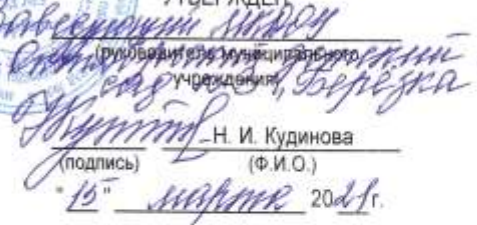 УТВЕРЖДЕН
Заведующий МКДОУ
(руководитель муниципального
детский
учреждения)
сад Березка
Н. И. Кудинова
(подпись) (Ф.И.О.)
"15" марта 2021г.